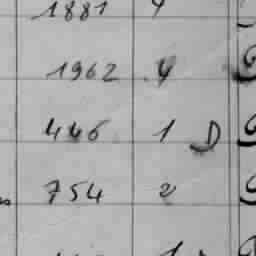 1881 4
1962 4
446 1 D
754 2